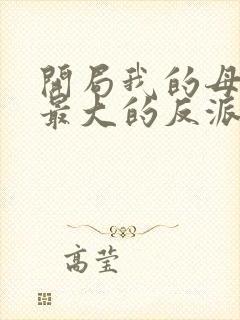 開局我的母
最大的反派
高莹